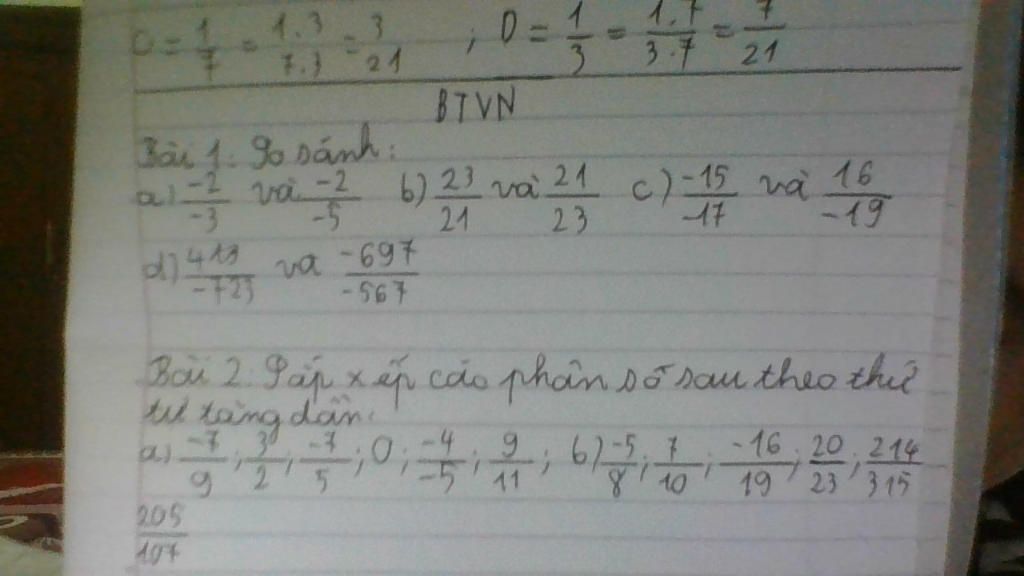 C = 1/7 = 1.3/7.3 = 3/21 ; D = 1/3 = 1.7/3.7 = 7/21
BTVN
Bài 1: So sánh:
a) -2/-3 và -2/-5 b) 23/21 và 21/23 c) -15/-17 và 16/-19
d) 419/-723 và -697/-567
Bài 2: Sắp xếp các phân số sau theo thứ
tự tăng dần:
a) -7/9 ; 3/2 ; -7/5 ; 0 ; -4/-5 ; 9/11 ; b) -5/8 ; 7/10 ; -16/19 ; 20/23 ; 214/315
205/107